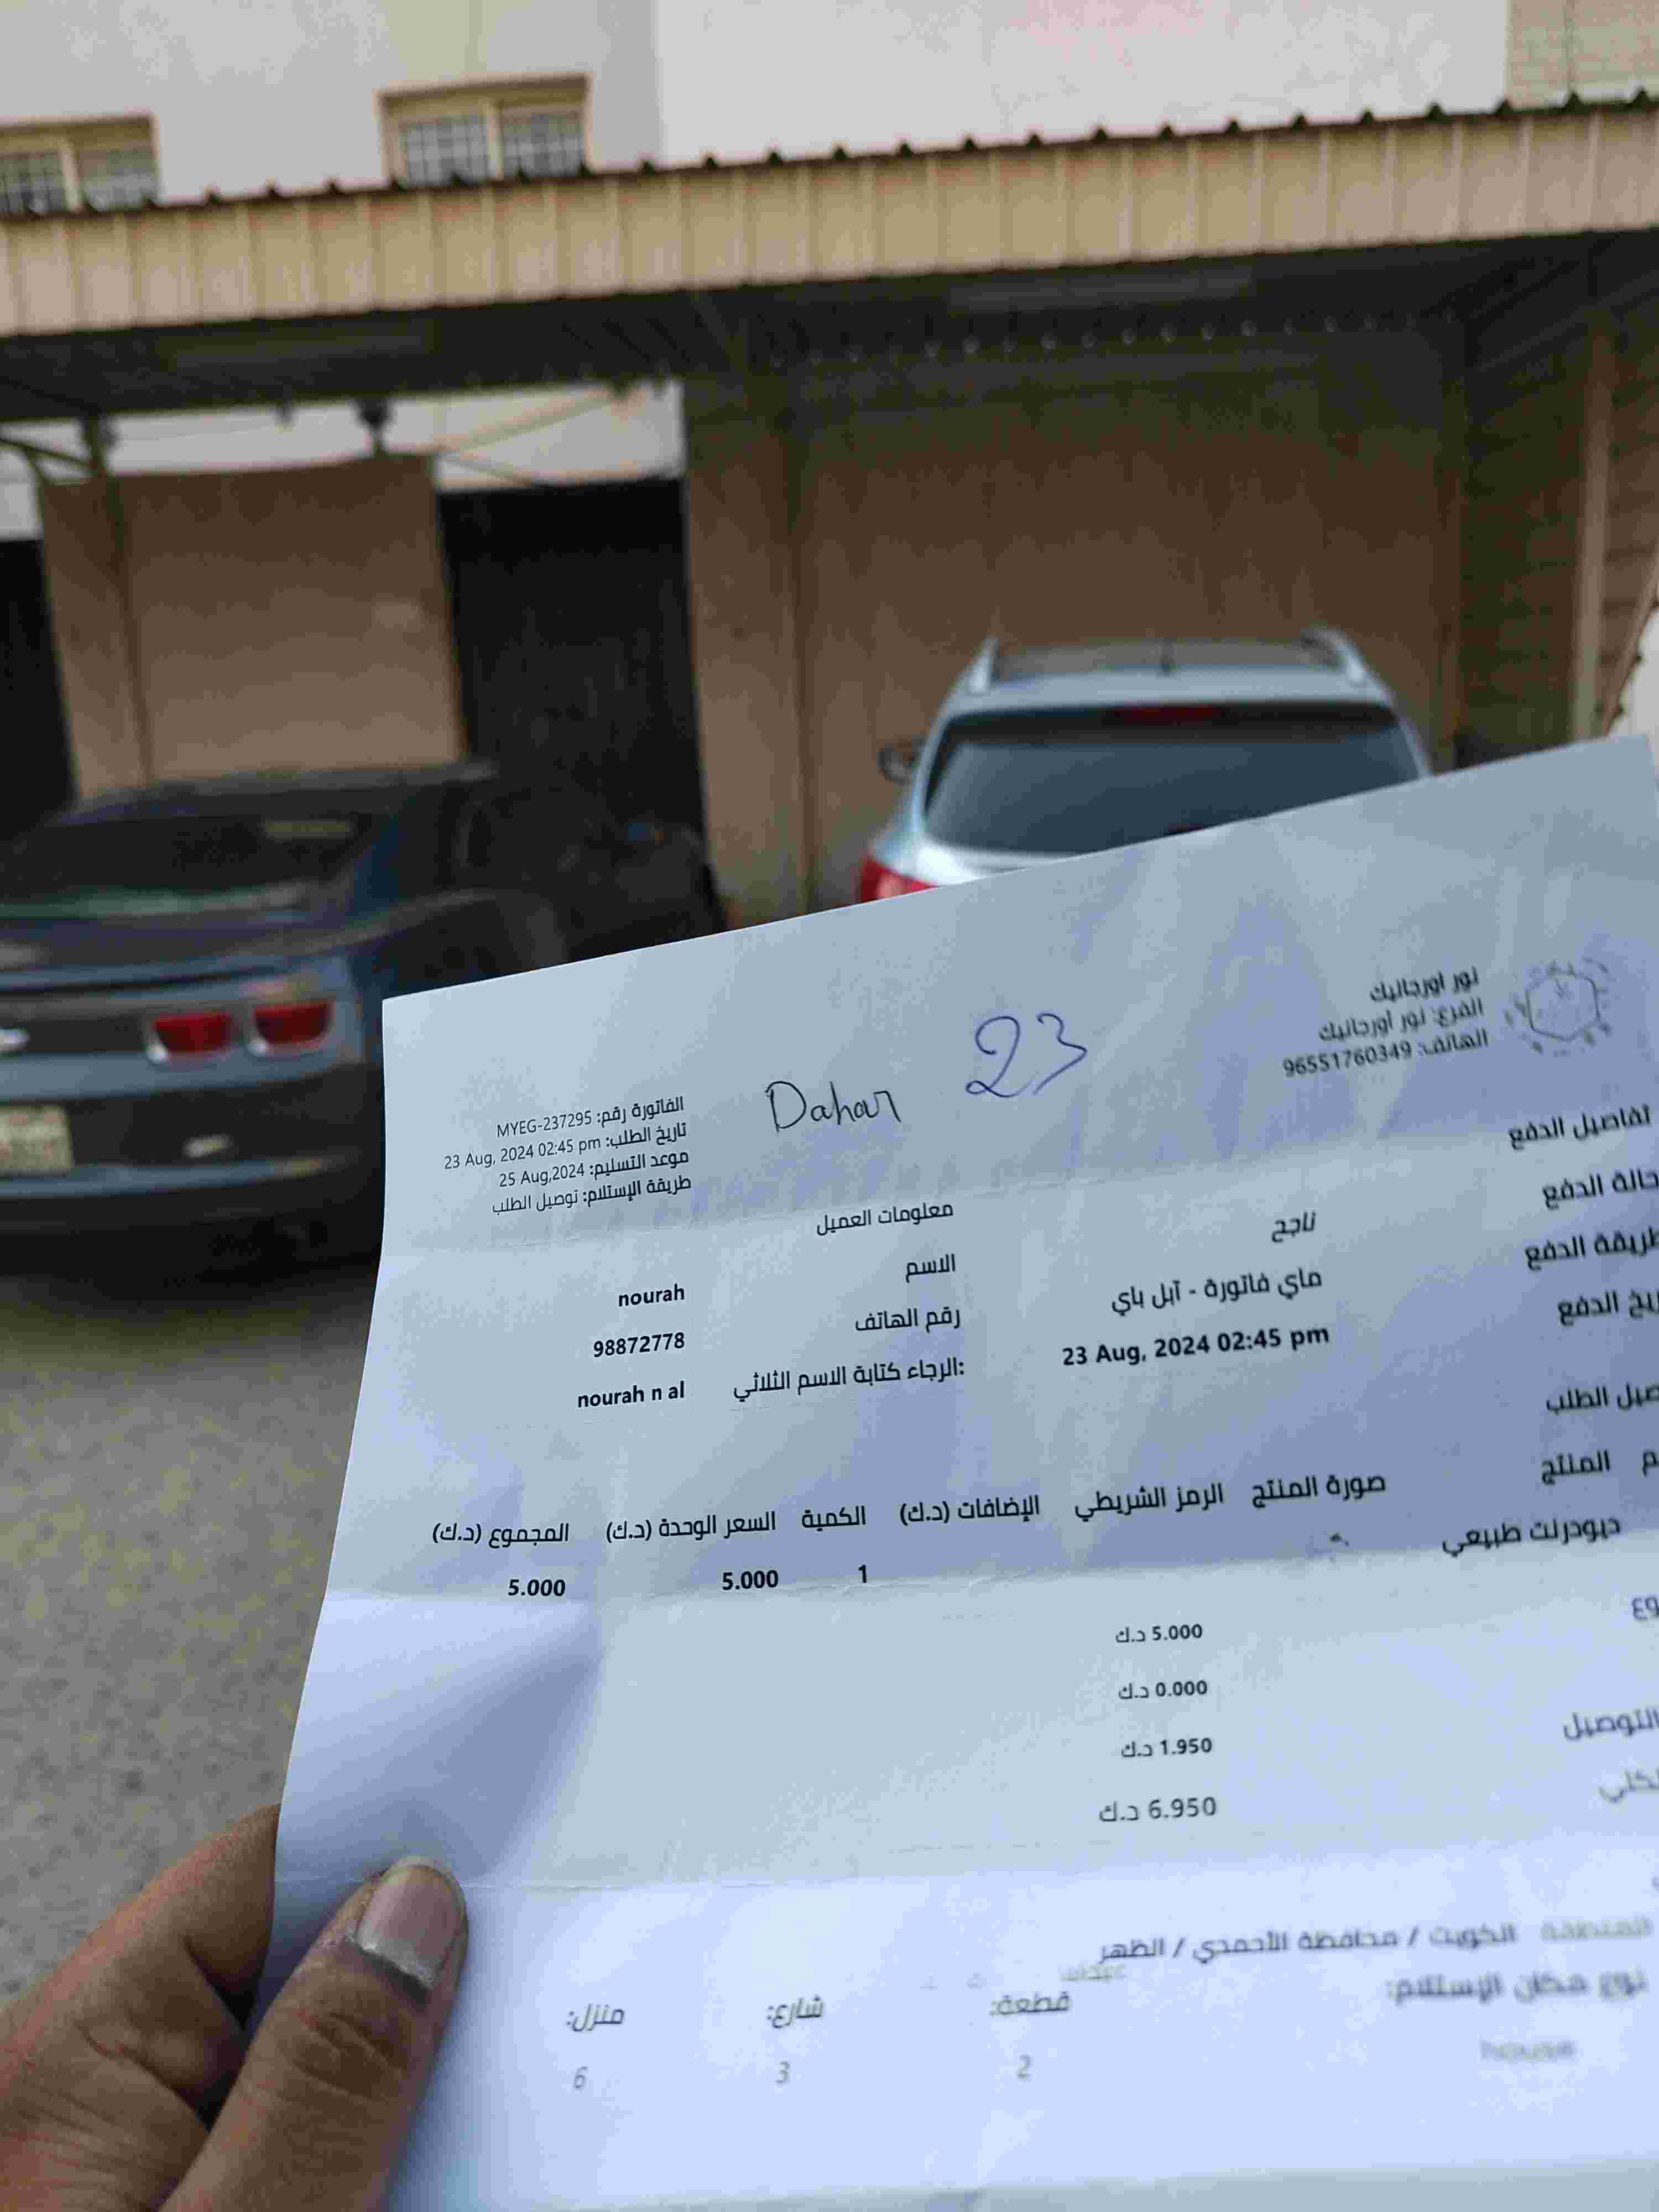 نور اورجانيك
الفرع: نور اورجانيك
الهاتف: 96551760349
Dahar 23
الفاتورة رقم: MYEG-237295
تاريخ الطلب: 23 Aug, 2024 02:45 pm
موعد التسليم: 25 Aug,2024
طريقة الإستلام: توصيل الطلب
تفاصيل الدفع
حالة الدفع ناجح
طريقة الدفع ماي فاتورة - آبل باي
الدفع 23 Aug, 2024 02:45 pm
معلومات العميل
الاسم nourah
رقم الهاتف 98872778
الرجاء كتابة الاسم الثلاثي: nourah n al
الطلب
المنتج صورة المنتج الرمز الشريطي الإضافات (د.ك) الكمية السعر الوحدة (د.ك) المجموع (د.ك)
ديودرنت طبيعي 1 5.000 5.000
5.000 د.ك
0.000 د.ك
التوصيل 1.950 د.ك
6.950 د.ك
المنطقة الكويت / محافظة الأحمدي / الظهر
نوع مكان الإستلام: قطعة: شارع: منزل:
house 2 3 6